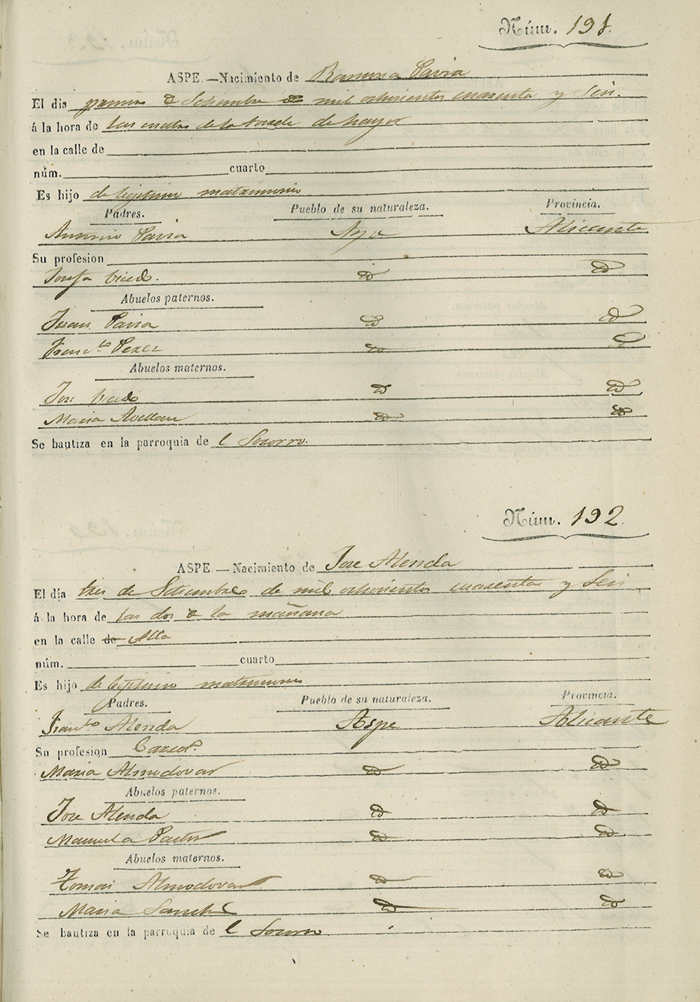 Núm. 191.
ASPE.—Nacimiento de Ramona Pavia
El dia primero d Setiembre de mil ochocientos cuarenta y Seis.
á la hora de las cuatro de la tarde de
en la calle de
núm. cuarto
Es hijo de legitimo matrimonio
Padres. Pueblo de su naturaleza. Provincia.
Antonio Pavia Aspe Alicante
Su profesion
Josefa id id
Abuelos paternos.
Juan Pavia id id
Franca. Perez id id
Abuelos maternos.
Jose id id
Maria Avellan id id
Se bautiza en la parroquia de l Socorro.
Núm. 192
ASPE.—Nacimiento de Jose Alenda
El día tres de Setiembre de mil ochocientos cuarenta y Seis
á la hora de las dos d la mañana
en la calle de Alta
núm. cuarto
Es hijo de legitimo matrimonio
Padres. Pueblo de su naturaleza. Provincia.
Franco. Alenda Aspe Alicante
Su profesion
Maria Almodovar id id
Abuelos paternos.
Jose Alenda id id
Manuela Pastor id id
Abuelos maternos.
Tomas Almodovar id id
Maria Sanchez id id
Se bautiza en la parroquia de l Socorro